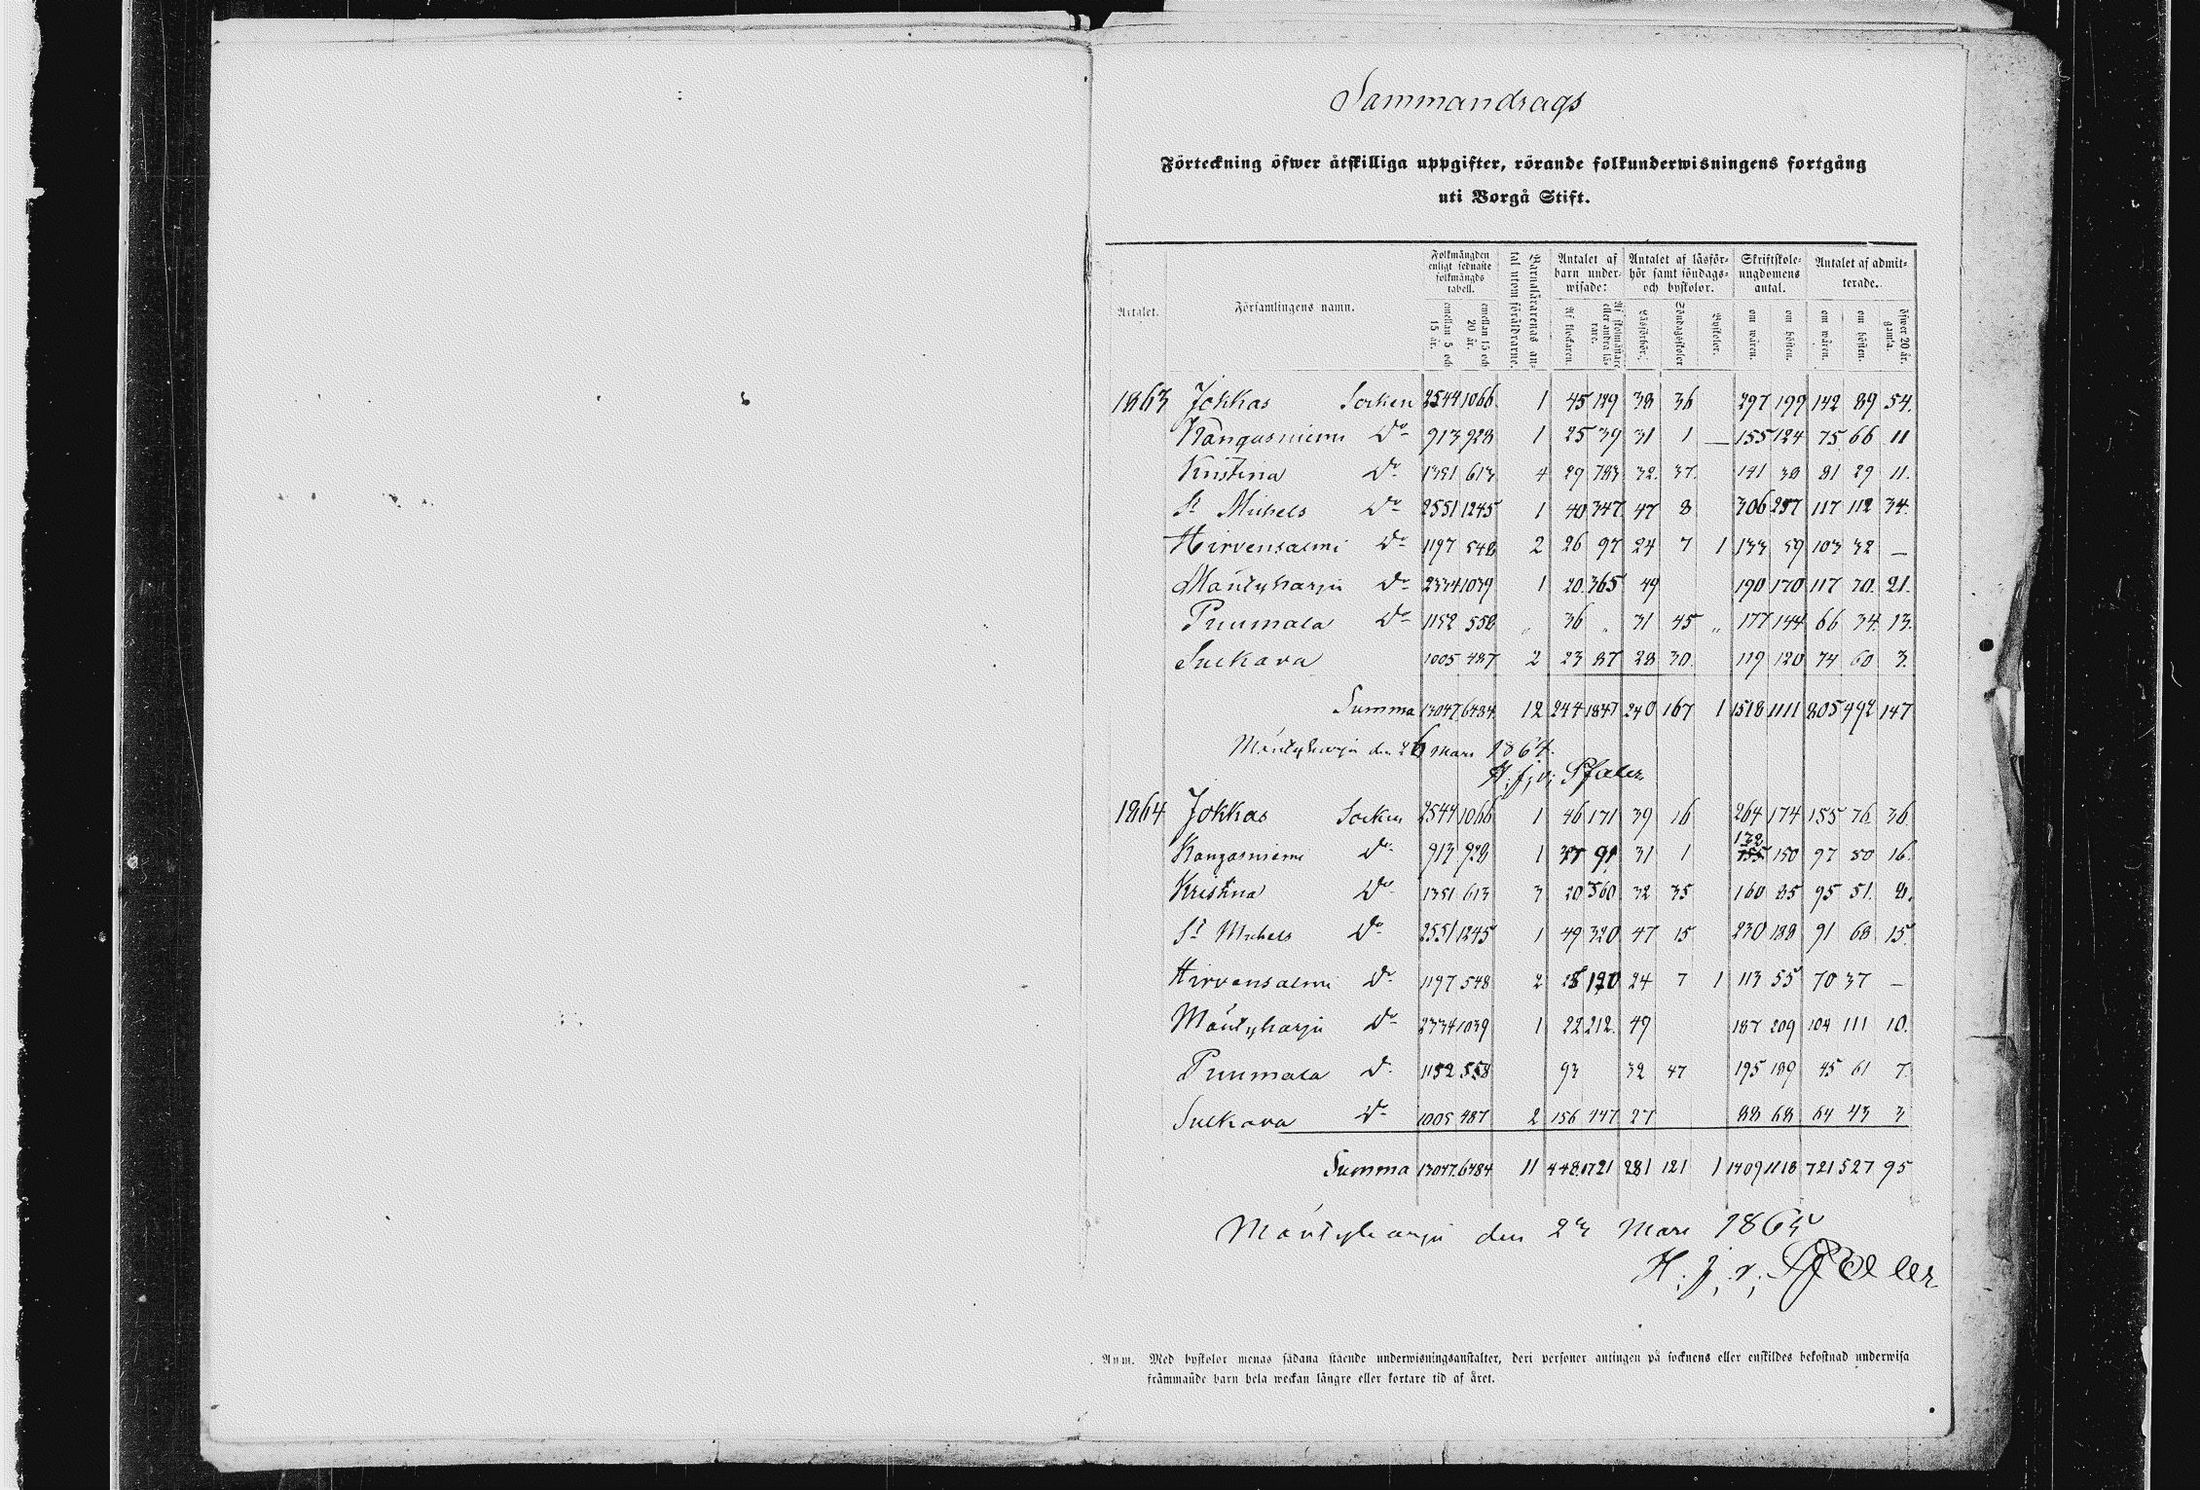 Sammandrags
Förteckning öfwer åtskilliga uppgifter, rörande folkunderwisningens fortgång
uti Borgå Stift.
Årtalet. Församlingens namn. Folkmängden enligt sednaste folkmängds tabell. emellan 5 och 15 år. emellan 15 och 20 år. Barnalärarenas antal utom föräldrarne. Antalet af barn underwisade: Af klockaren. Af skolmästare eller andra lärare. Antalet af läsförhör samt söndags- och byskolor. Läsförhör. Söndagsskolor. Byskolor. Skriftskole-ungdomens antal. om wåren. om hösten. Antalet af admitterade. om wåren. om hösten. öfwer 20 år gamla.
1863 Jokkas Socken 2544 1066 1 45 189 38 36 297 199 142 89 54.
Kangasniemi Do 913 928 1 25 39 31 1 — 155 124 75 66 11
Kristina Do 1351 613 4 29 783 32. 37. 141 38 81 29 11.
St Michels Do 2551 1245 1 40 347 47 8 306 257 117 112 34.
Hirvensalmi Do 1197 548 2 26 97 24 7 1 133 59 103 32 —
Mäntyharju Do 2334 1039 1 20 365 49 190 170 117 70. 21.
Puumala Do 1152 558 „ 36 „ 31 45 „ 177 144 66 34. 13.
Sulkava 1005 487 2 23 87 28 30. 119 120 74 60 3.
Summa 13047 6484 12 244 1847 240 167 1 1518 1111 805 992 147
Mäntyharju den 26 Mars 1864.
H. j. v. Pfaler
1864 Jokkas Socken 2544 1066 1 46 171 39 16 264 174 155 76 36
Kangasniemi Do 913 928 1 37 91 31 1 132 150 97 80 16.
Kristina Do 1351 613 3 20 560 32 35 160 85 95 51. 8.
St Michels Do 2551 1245 1 49 320 47 15 230 188 91 68 15.
Hirvensalmi Do 1197 548 2 28 120 24 7 1 113 55 70 37 —
Mäntyharju Do 2334 1039 1 22 212. 49 187 209 104 111 10.
Puumala Do 1152 558 93 32 47 195 189 45 61 7.
Sulkava Do 1005 487 2 156 247 27 88 68 64 43 3
Summa 13047 6484 11 448 1721 281 121 1 1409 1118 721 527 95
Mäntyharju den 23 Mars 1865
H. j. v. Pfaler
Anm. Med byskolor menas sådana stående underwisningsanstalter, deri personer antingen på socknens eller enskildes bekostnad underwisa
främmande barn hela weckan längre eller kortare tid af året.